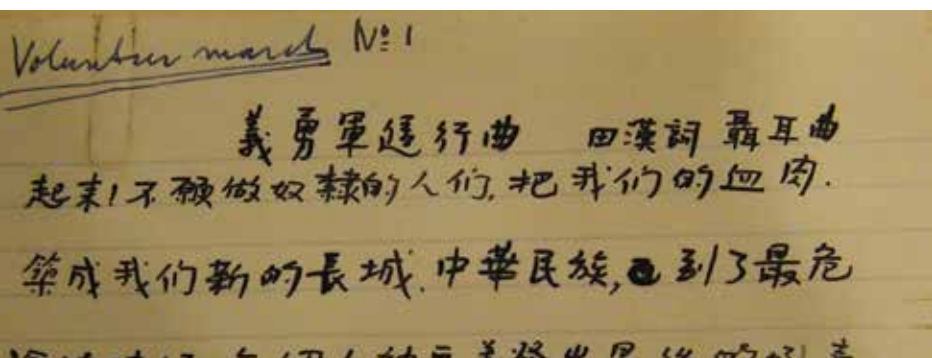 Volunteer march № 1
義勇軍進行曲 田漢詞 聶耳曲
起来!不願做奴隸的人们,把我们的血肉.
築成我们新的長城.中華民族,到了最危